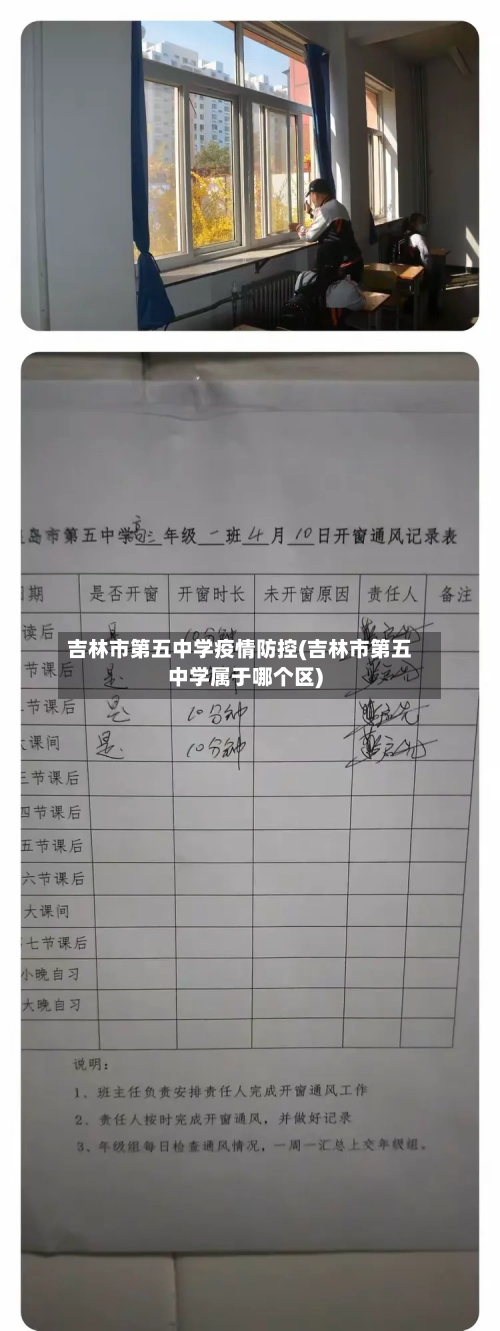 岛市第五中学高三年级一班4月10日开窗通风记录表
期 是否开窗 开窗时长 未开窗原因 责任人 备注
读后 是 10分钟
吉林市第五中学疫情防控(吉林市第五
中学属于哪个区)
节课后 是
节课后 是 10分钟
课间 是 10分钟
三节课后
四节课后
五节课后
六节课后
大课间
七节课后
小晚自习
大晚自习
说明：
1、班主任负责安排责任人完成开窗通风工作
2、责任人按时完成开窗通风，并做好记录
3、年级组每日检查通风情况，一周一汇总上交年级组。